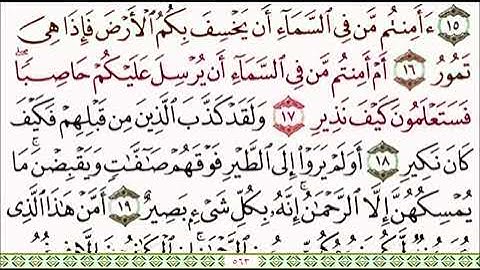 ١٥ ءَأَمِنتُم مَّن فِى ٱلسَّمَآءِ أَن يَخْسِفَ بِكُمُ ٱلْأَرْضَ فَإِذَا هِىَ
تَمُورُ ١٦ أَمْ أَمِنتُم مَّن فِى ٱلسَّمَآءِ أَن يُرْسِلَ عَلَيْكُمْ حَاصِبًا ۖ
فَسَتَعْلَمُونَ كَيْفَ نَذِيرِ ١٧ وَلَقَدْ كَذَّبَ ٱلَّذِينَ مِن قَبْلِهِمْ فَكَيْفَ
كَانَ نَكِيرِ ١٨ أَوَلَمْ يَرَوْا۟ إِلَى ٱلطَّيْرِ فَوْقَهُمْ صَـٰٓفَّـٰتٍ وَيَقْبِضْنَ ۚ مَا
يُمْسِكُهُنَّ إِلَّا ٱلرَّحْمَـٰنُ ۚ إِنَّهُۥ بِكُلِّ شَىْءٍۭ بَصِيرٌ ١٩ أَمَّنْ هَـٰذَا ٱلَّذِى
٥٦٣